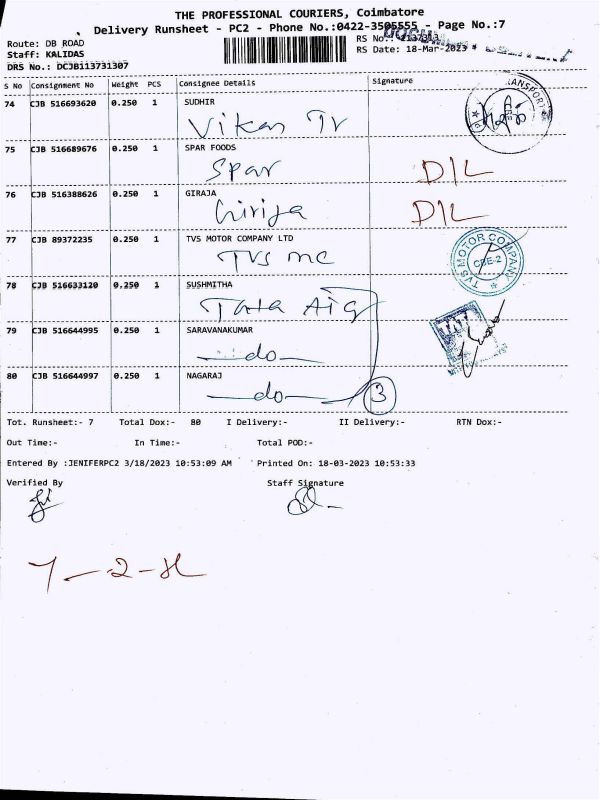 THE PROFESSIONAL COURIERS, Coimbatore
Delivery Runsheet - PC2 - Phone No.:0422-3505555 - Page No.:7
Route: DB ROAD
RS No.:
Staff: KALIDAS
RS Date: 18-Mar-2023
DRS No.: DCJB113731307
S No Consignment No Weight PCS Consignee Details Signature
74 CJB 516693620 0.250 1 SUDHIR
Vikas Tr
75 CJB 516689676 0.250 1 SPAR FOODS
Spar D/L
76 CJB 516388626 0.250 1 GIRAJA
Girija D/L
77 CJB 89372235 0.250 1 TVS MOTOR COMPANY LTD
TVS MC
TVS MOTOR COMPANY
CBE-2
78 CJB 516633120 0.250 1 SUSHMITHA
Tata Aig
79 CJB 516644995 0.250 1 SARAVANAKUMAR
—do—
80 CJB 516644997 0.250 1 NAGARAJ
—do— 3
Tot. Runsheet:- 7 Total Dox:- 80 I Delivery:- II Delivery:- RTN Dox:-
Out Time:- In Time:- Total POD:-
Entered By :JENIFERPC2 3/18/2023 10:53:09 AM Printed On: 18-03-2023 10:53:33
Verified By Staff Signature